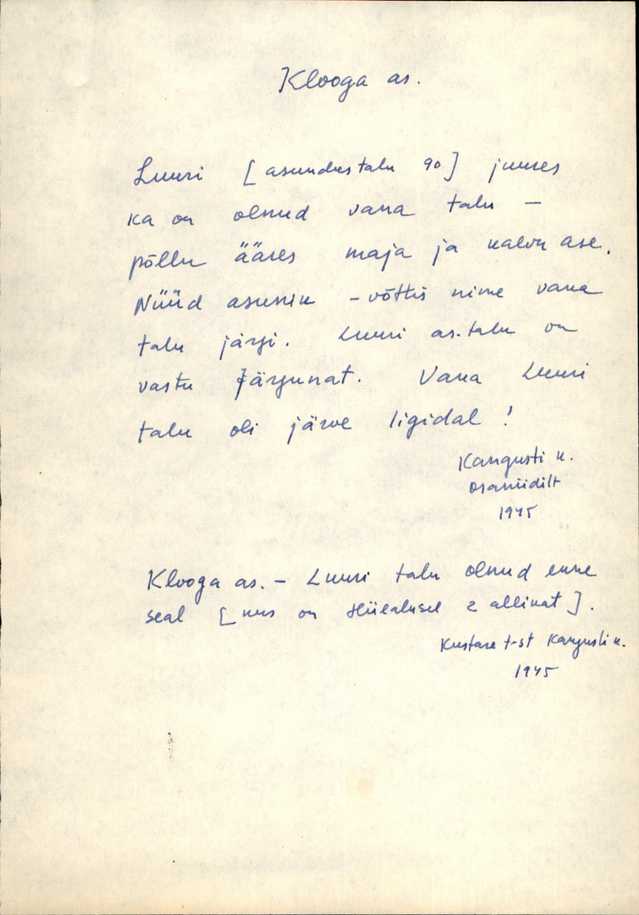 Klooga as.
Luuri [asundustalu 90] juures
ka on olnud vana talu –
põllu ääres maja ja kaevu ase.
Nüüd asunik – võttis nime vana
talu järgi. Luuri as.talu on
vastu järgunat. Vana Luuri
talu oli järve ligidal!
Kangusti k.
osaniidilt
1945
Klooga as. – Luuri talu olnud enne
seal [kus on Hüealusel 2 allikat].
Kustase t-st Kangusti k.
1945